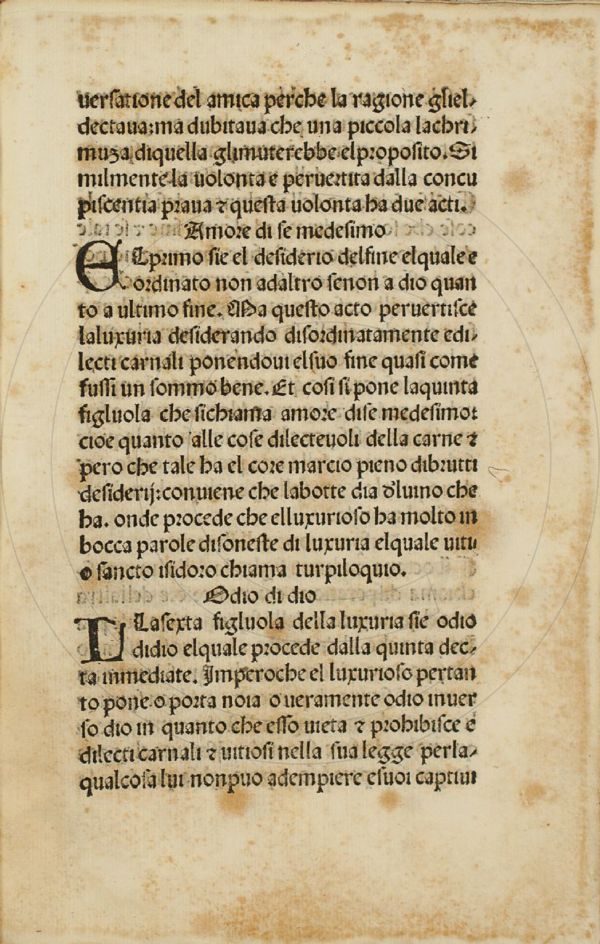 uersatione del amica perche la ragione gliel-
dectaua:ma dubitaua che una piccola lachri-
muza diquella glimuterebbe elproposito. Si
milmente la uolonta e peruertita dalla concu
piscentia praua ⁊ questa uolonta ha due acti.
Amore di se medesimo
ELprimo sie el desiderio delfine elquale e
ordinato non adaltro senon a dio quan
to a ultimo fine. Ma questo acto peruertisce
laluxuria desiderando disordinatamente edi-
lecti carnali ponendoui elsuo fine quasi come
fussi un sommo bene. Et cosi si pone laquinta
figluola che sichiama amore dise medesimo:
cioe quanto alle cose dilecteuoli della carne ⁊
pero che tale ha el core marcio pieno dibrutti
desiderij:conuiene che labotte dia d'luino che
ha. onde procede che elluxurioso ha molto in
bocca parole disoneste di luxuria elquale uitu
o sancto isidoro chiama turpiloquio.
Odio di dio
LLasexta figluola della luxuria sie odio
didio elquale procede dalla quinta dec-
ta inmediate. Imperoche el luxurioso pertan
to pone o porta noia o ueramente odio inuer
so dio in quanto che esso uieta ⁊ prohibisce e
dilecti carnali ⁊ uitiosi nella sua legge perla-
qualcosa lui nonpuo adempiere esuoi captiui